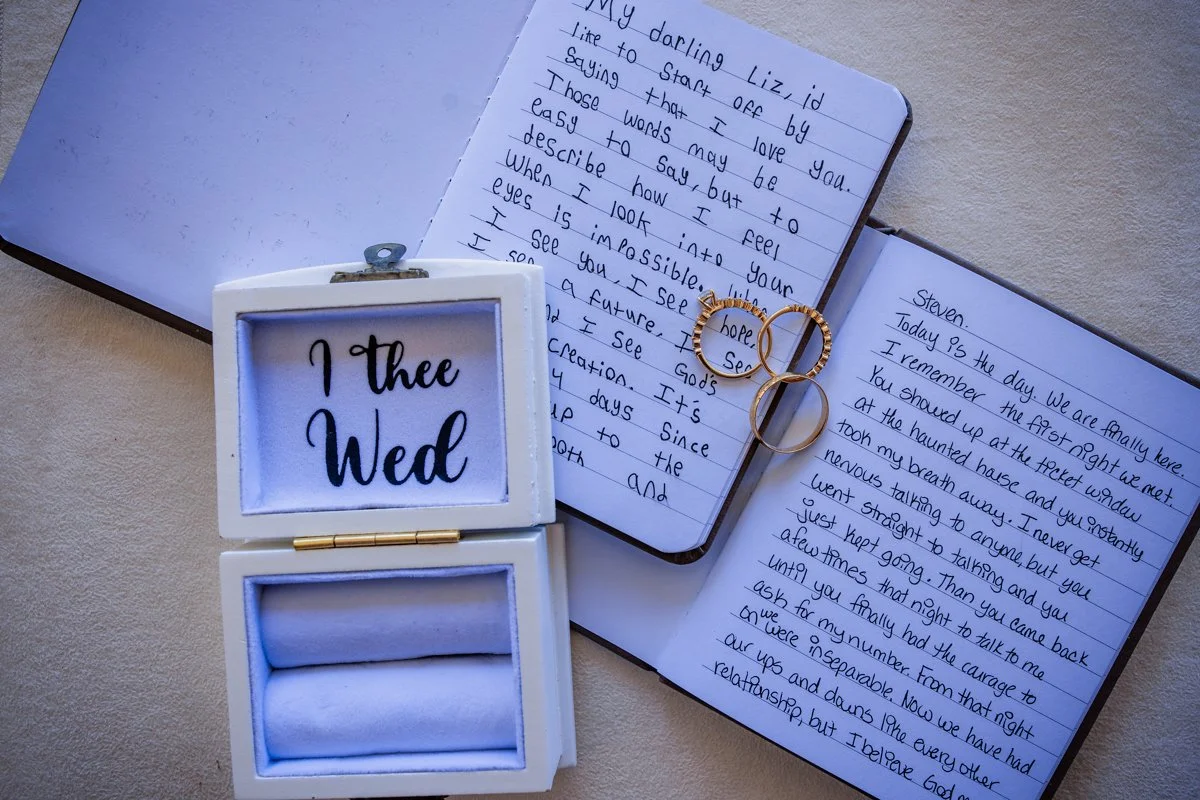 My darling Liz, id
like to start off by
saying that I love you.
Those words may be
easy to say, but to
describe how I feel
when I look into your
eyes is impossible.
I see you, I see hope,
I see a future, I see
and I see God's
creation. It's
days since
up to the
and
I thee
Wed
Steven.
Today is the day. We are finally here.
I remember the first night we met.
You showed up at the ticket window
at the haunted house and you instantly
took my breath away. I never get
nervous talking to anyone, but you
went straight to talking and you
just kept going. Than you came back
a few times that night to talk to me
until you finally had the courage to
ask for my number. From that night
on we were inseparable. Now we have had
our ups and downs like every other
relationship, but I believe God